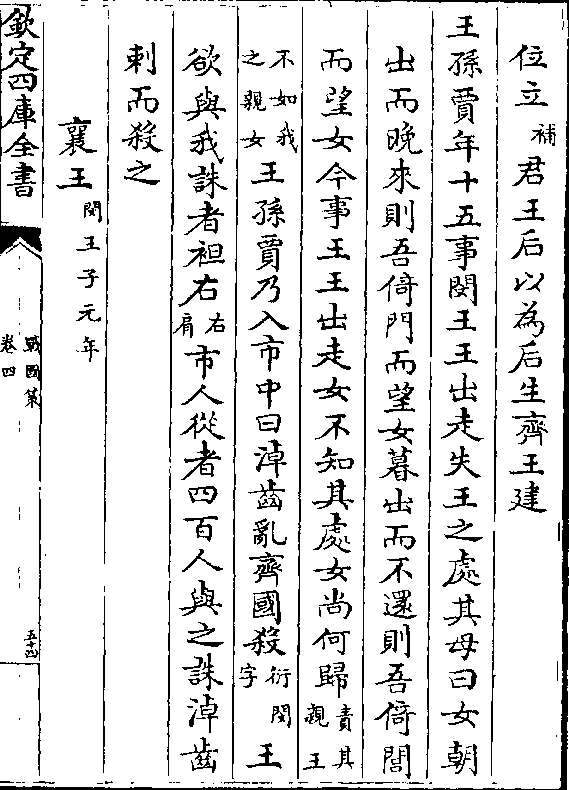 位立補君王后以為后生齊王建
王孫賈年十五事閔王王出走失王之處其母曰女朝
出而晚來則吾倚門而望女暮出而不還則吾倚閭
而望女今事王王出走女不知其處女尚何歸責其親王
不如我之親女王孫賈乃入市中曰淖齒亂齊國殺衍閔字王
欲與我誅者袒右右肩市人從者四百人與之誅淖齒
刺而殺之
襄王閔王子元年
欽定四庫全書
戰國策
卷四
五十四